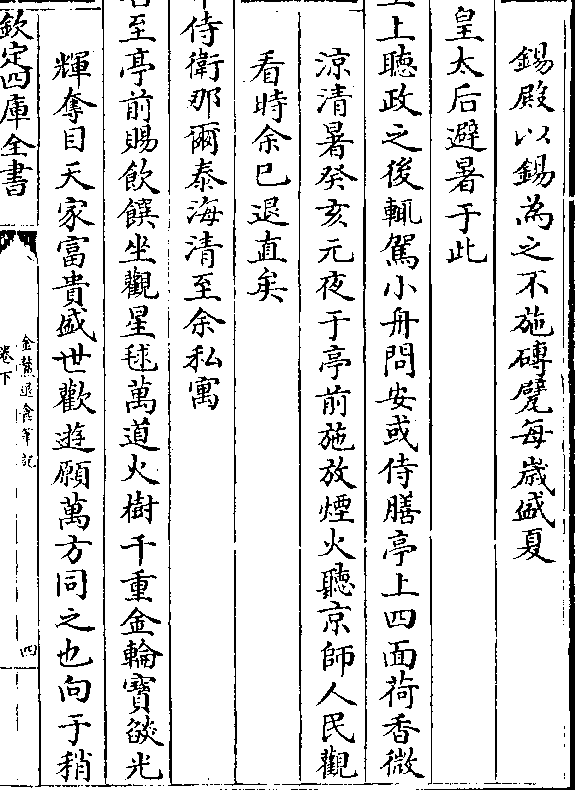 錫殿以錫為之不施磚甓每歲盛夏
皇太后避暑于此
上聽政之後輒駕小舟問安或侍膳亭上四面荷香微
涼清暑癸亥元夜于亭前施放煙火聽京師人民觀
看時余已退直矣
侍衛那爾泰海清至余私寓
至亭前賜飲饌坐觀星毬萬道火樹千重金輪寶燄光
輝奪目天家富貴盛世歡遊願萬方同之也向于稍
欽定四庫全書
金鰲退食筆記
卷下
四